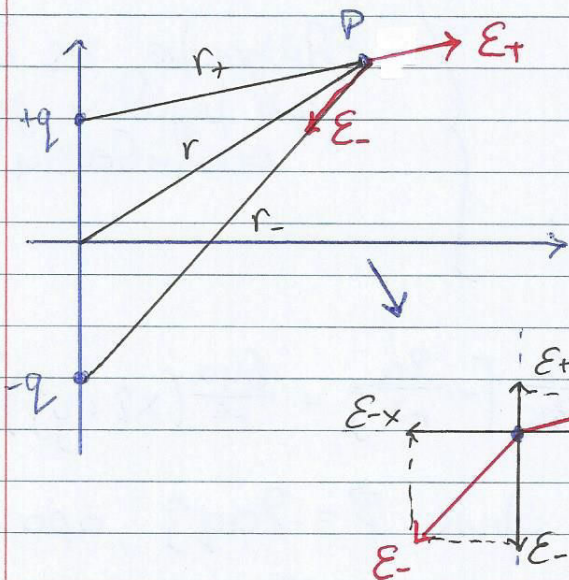 P
r+
ℰ+
+q
r
ℰ-
r-
-q
ℰ+
ℰ-x
ℰ-
ℰ-